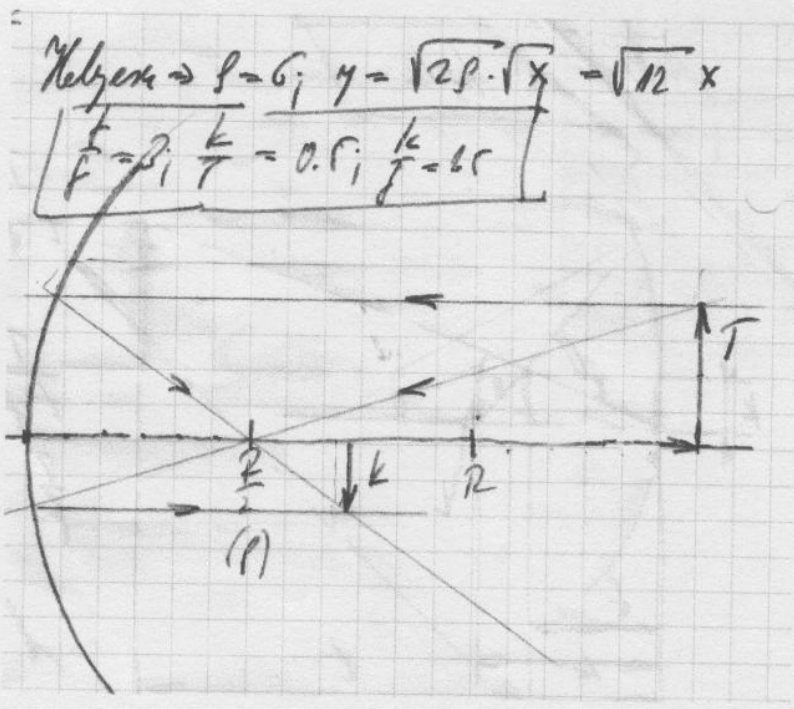 Helyesen ⇒ ρ = 6; y = √2ρ · √x = √12 x
t/f = 3; k/T = 0.5; k/f = 1.5
T
R/2
k
R
(ρ)